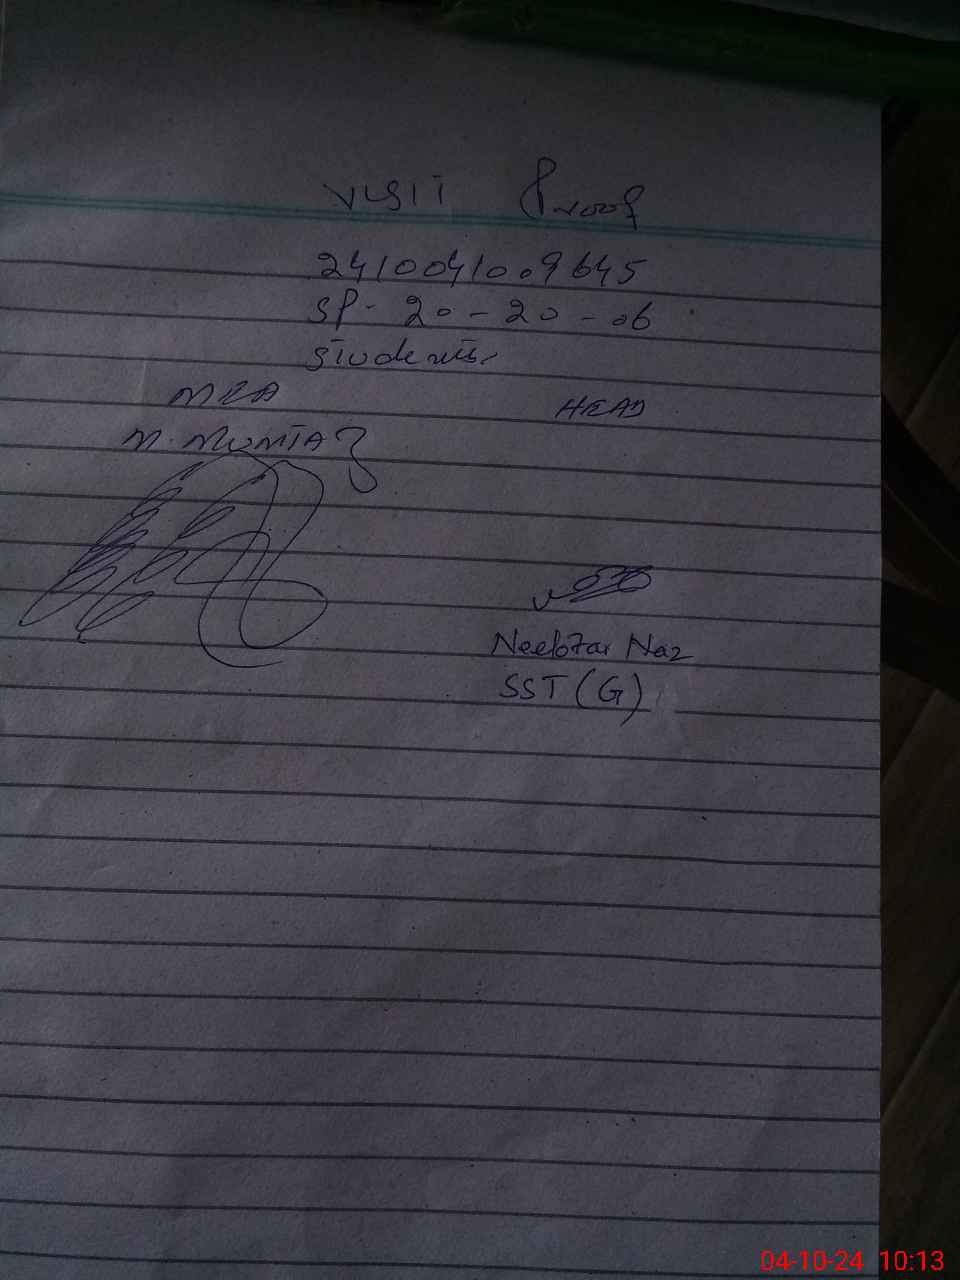 VISIT Proof
2410041009645
SP- 20-20-06
Students
MEA
HEAD
M. MUMTAZ
Neelofar Naz
SST (G)
04-10-24 10:13